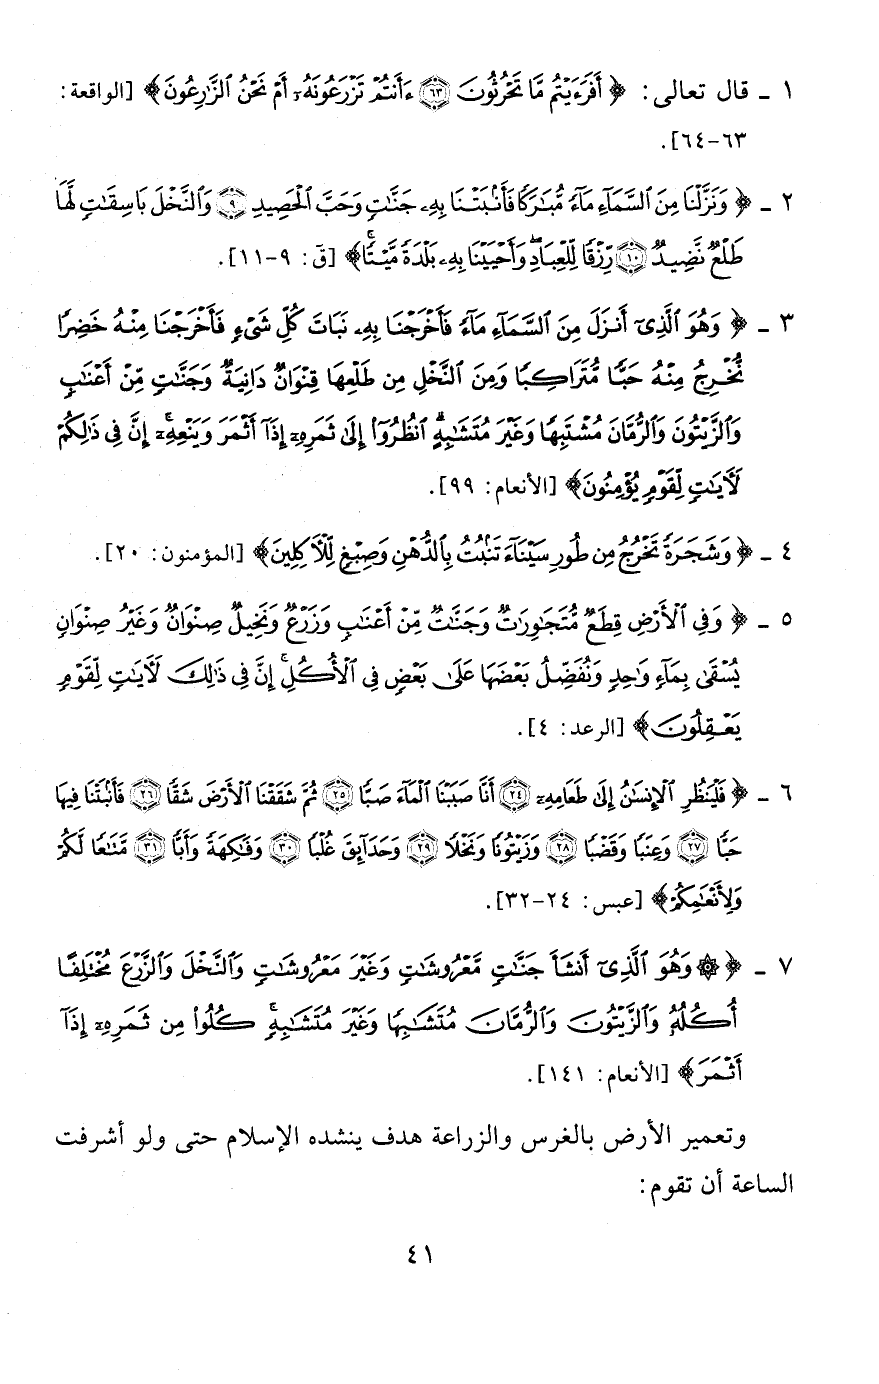 ١ ـ قال تعالى: ﴿ أَفَرَءَيْتُم مَّا تَحْرُثُونَ ۝٦٣ ءَأَنتُمْ تَزْرَعُونَهُۥٓ أَمْ نَحْنُ ٱلزَّٰرِعُونَ ﴾ [الواقعة:
٦٣-٦٤].
٢ ـ ﴿ وَنَزَّلْنَا مِنَ ٱلسَّمَآءِ مَآءً مُّبَٰرَكًا فَأَنۢبَتْنَا بِهِۦ جَنَّٰتٍ وَحَبَّ ٱلْحَصِيدِ ۝٩ وَٱلنَّخْلَ بَاسِقَٰتٍ لَّهَا
طَلْعٌ نَّضِيدٌ ۝١٠ رِّزْقًا لِّلْعِبَادِ ۖ وَأَحْيَيْنَا بِهِۦ بَلْدَةً مَّيْتًا ۚ ﴾ [قۤ: ٩-١١].
٣ ـ ﴿ وَهُوَ ٱلَّذِىٓ أَنزَلَ مِنَ ٱلسَّمَآءِ مَآءً فَأَخْرَجْنَا بِهِۦ نَبَاتَ كُلِّ شَىْءٍ فَأَخْرَجْنَا مِنْهُ خَضِرًا
نُّخْرِجُ مِنْهُ حَبًّا مُّتَرَاكِبًا وَمِنَ ٱلنَّخْلِ مِن طَلْعِهَا قِنْوَانٌ دَانِيَةٌ وَجَنَّٰتٍ مِّنْ أَعْنَابٍ
وَٱلزَّيْتُونَ وَٱلرُّمَّانَ مُشْتَبِهًا وَغَيْرَ مُتَشَٰبِهٍ ۗ ٱنظُرُوٓا۟ إِلَىٰ ثَمَرِهِۦٓ إِذَآ أَثْمَرَ وَيَنْعِهِۦٓ ۚ إِنَّ فِى ذَٰلِكُمْ
لَءَايَٰتٍ لِّقَوْمٍ يُؤْمِنُونَ ﴾ [الأنعام: ٩٩].
٤ ـ ﴿ وَشَجَرَةً تَخْرُجُ مِن طُورِ سَيْنَآءَ تَنۢبُتُ بِٱلدُّهْنِ وَصِبْغٍ لِّلْءَاكِلِينَ ﴾ [المؤمنون: ٢٠].
٥ ـ ﴿ وَفِى ٱلْأَرْضِ قِطَعٌ مُّتَجَٰوِرَٰتٌ وَجَنَّٰتٌ مِّنْ أَعْنَٰبٍ وَزَرْعٌ وَنَخِيلٌ صِنْوَانٌ وَغَيْرُ صِنْوَانٍ
يُسْقَىٰ بِمَآءٍ وَٰحِدٍ وَنُفَضِّلُ بَعْضَهَا عَلَىٰ بَعْضٍ فِى ٱلْأُكُلِ ۚ إِنَّ فِى ذَٰلِكَ لَءَايَٰتٍ لِّقَوْمٍ
يَعْقِلُونَ ﴾ [الرعد: ٤].
٦ ـ ﴿ فَلْيَنظُرِ ٱلْإِنسَٰنُ إِلَىٰ طَعَامِهِۦٓ ۝٢٤ أَنَّا صَبَبْنَا ٱلْمَآءَ صَبًّا ۝٢٥ ثُمَّ شَقَقْنَا ٱلْأَرْضَ شَقًّا ۝٢٦ فَأَنۢبَتْنَا فِيهَا
حَبًّا ۝٢٧ وَعِنَبًا وَقَضْبًا ۝٢٨ وَزَيْتُونًا وَنَخْلًا ۝٢٩ وَحَدَآئِقَ غُلْبًا ۝٣٠ وَفَٰكِهَةً وَأَبًّا ۝٣١ مَّتَٰعًا لَّكُمْ
وَلِأَنْعَٰمِكُمْ ﴾ [عبس: ٢٤-٣٢].
٧ ـ ﴿ ۞ وَهُوَ ٱلَّذِىٓ أَنشَأَ جَنَّٰتٍ مَّعْرُوشَٰتٍ وَغَيْرَ مَعْرُوشَٰتٍ وَٱلنَّخْلَ وَٱلزَّرْعَ مُخْتَلِفًا
أُكُلُهُۥ وَٱلزَّيْتُونَ وَٱلرُّمَّانَ مُتَشَٰبِهًا وَغَيْرَ مُتَشَٰبِهٍ ۚ كُلُوا۟ مِن ثَمَرِهِۦٓ إِذَآ
أَثْمَرَ ﴾ [الأنعام: ١٤١].
وتعمير الأرض بالغرس والزراعة هدف ينشده الإسلام حتى ولو أشرفت
الساعة أن تقوم:
٤١